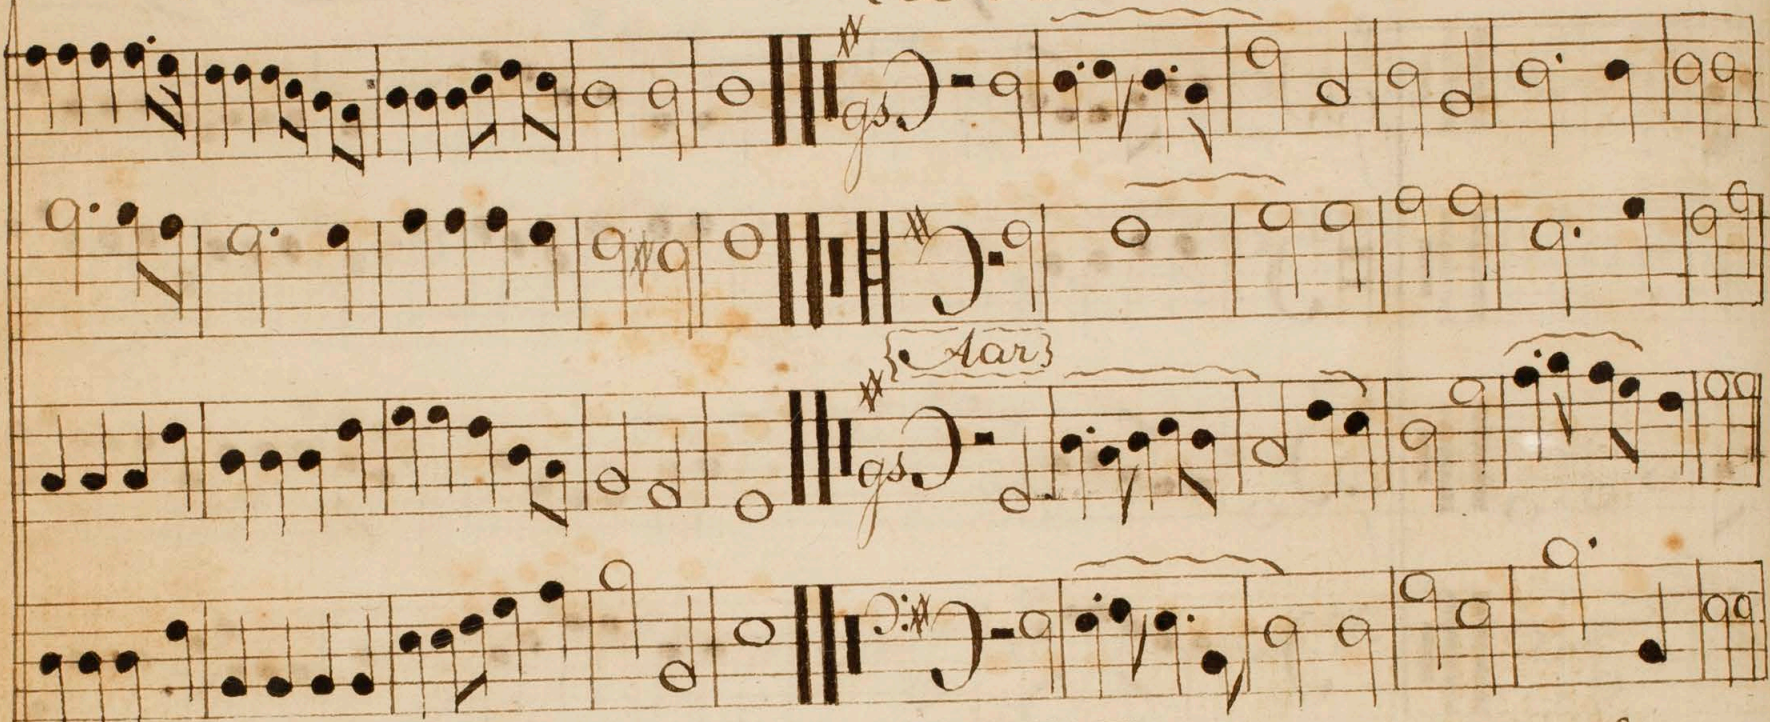 gs.
Aar
gs.